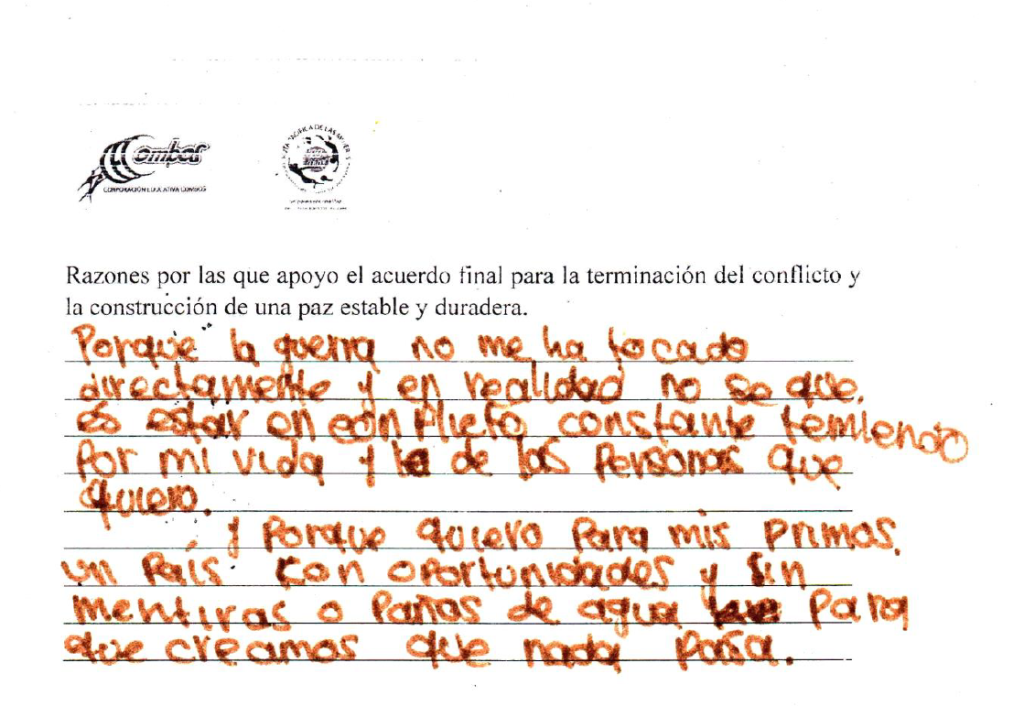 Combos
CORPORACIÓN EDUCATIVA COMBOS
Razones por las que apoyo el acuerdo final para la terminación del conflicto y
la construcción de una paz estable y duradera.
Porque la guerra no me ha tocado
directamente y en realidad no se que
es estar en conflicto constante temiendo
por mi vida y la de las personas que
quiero.
y Porque quiero para mis primos,
un País con oportunidades y sin
mentiras o Paños de agua para
que creamos que nada pasa.